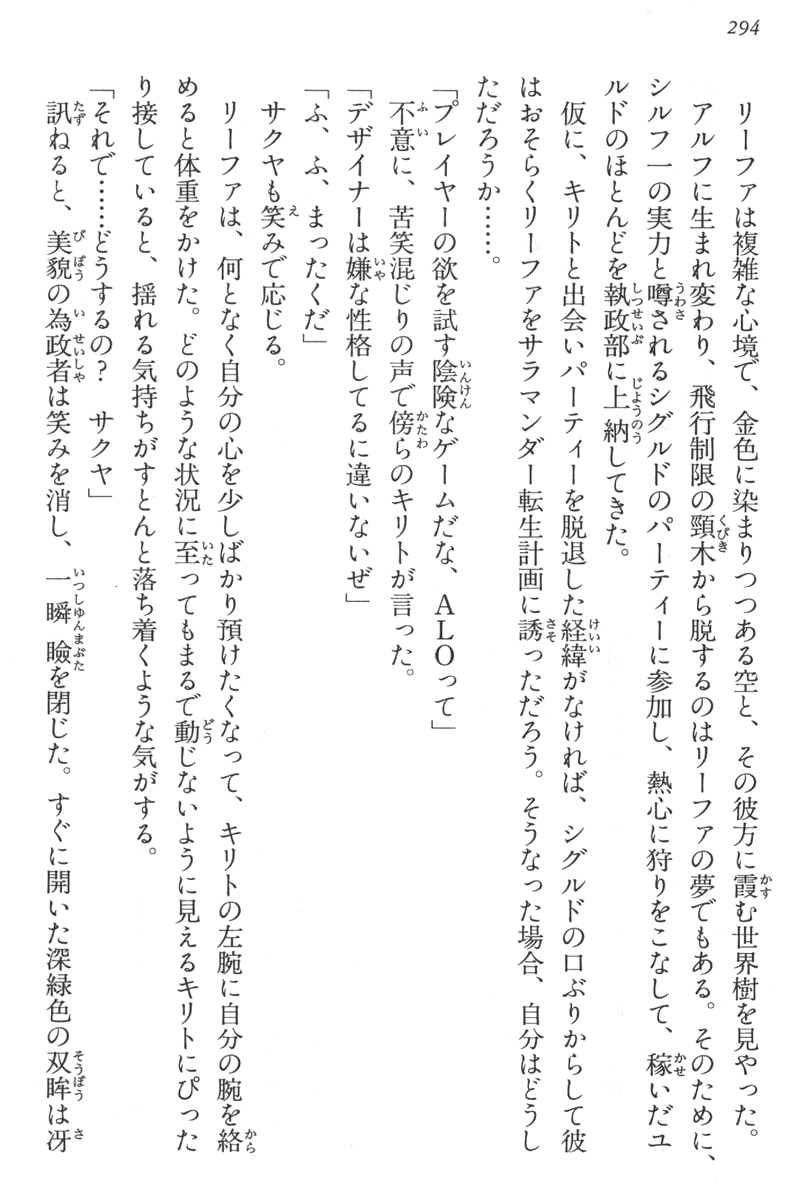 294
リーファは複雑な心境で、金色に染まりつつある空と、その彼方に霞む世界樹を見やった。
アルフに生まれ変わり、飛行制限の頸木から脱するのはリーファの夢でもある。そのために、
シルフ一の実力と噂されるシグルドのパーティーに参加し、熱心に狩りをこなして、稼いだユ
ルドのほとんどを執政部に上納してきた。
仮に、キリトと出会いパーティーを脱退した経緯がなければ、シグルドの口ぶりからして彼
はおそらくリーファをサラマンダー転生計画に誘っただろう。そうなった場合、自分はどうし
ただろうか……。
「プレイヤーの欲を試す陰険なゲームだな、ALOって」
不意に、苦笑混じりの声で傍らのキリトが言った。
「デザイナーは嫌な性格してるに違いないぜ」
「ふ、ふ、まったくだ」
サクヤも笑みで応じる。
リーファは、何となく自分の心を少しばかり預けたくなって、キリトの左腕に自分の腕を絡
めると体重をかけた。どのような状況に至ってもまるで動じないように見えるキリトにぴった
り接していると、揺れる気持ちがすとんと落ち着くような気がする。
「それで……どうするの？　サクヤ」
訊ねると、美貌の為政者は笑みを消し、一瞬瞼を閉じた。すぐに開いた深緑色の双眸は冴